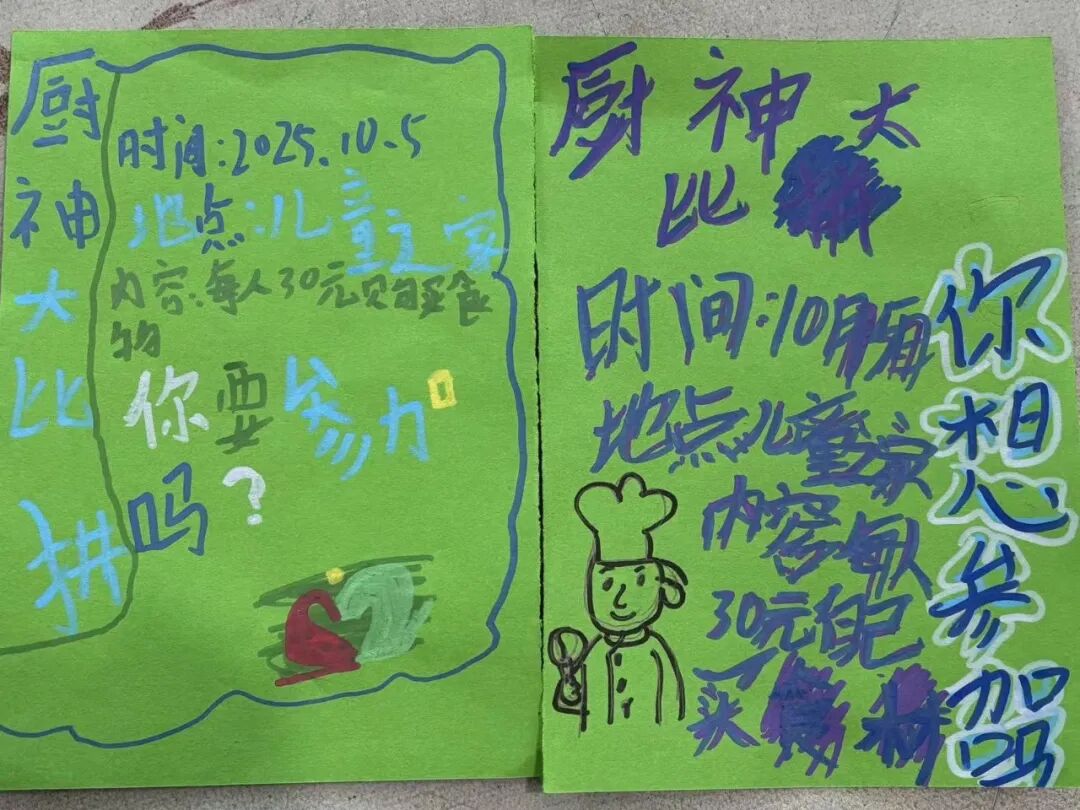 厨神大比拼
时间:2025.10.5
地点:儿童之家
内容:每人30元购买食
物
你要参加
吗?
厨神大
比
时间:10月5日
地点:儿童家
内容每人
30元自己
买
你想参加吗